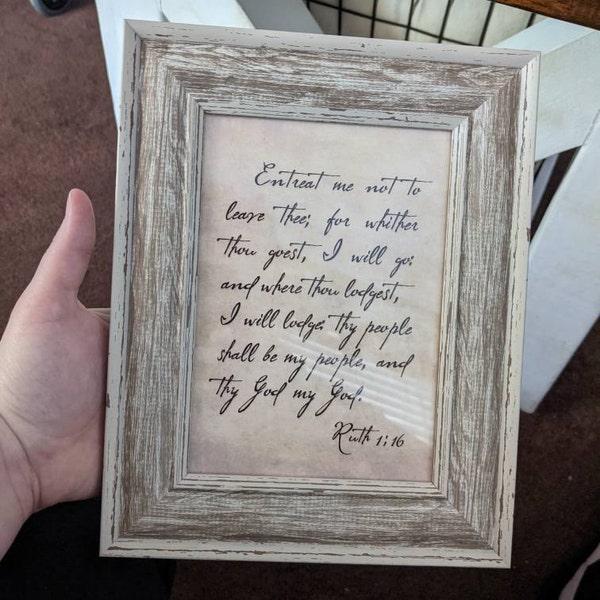 Entreat me not to
leave thee; for whither
thou goest, I will go;
and where thou lodgest,
I will lodge: thy people
shall be my people, and
thy God my God.
Ruth 1:16